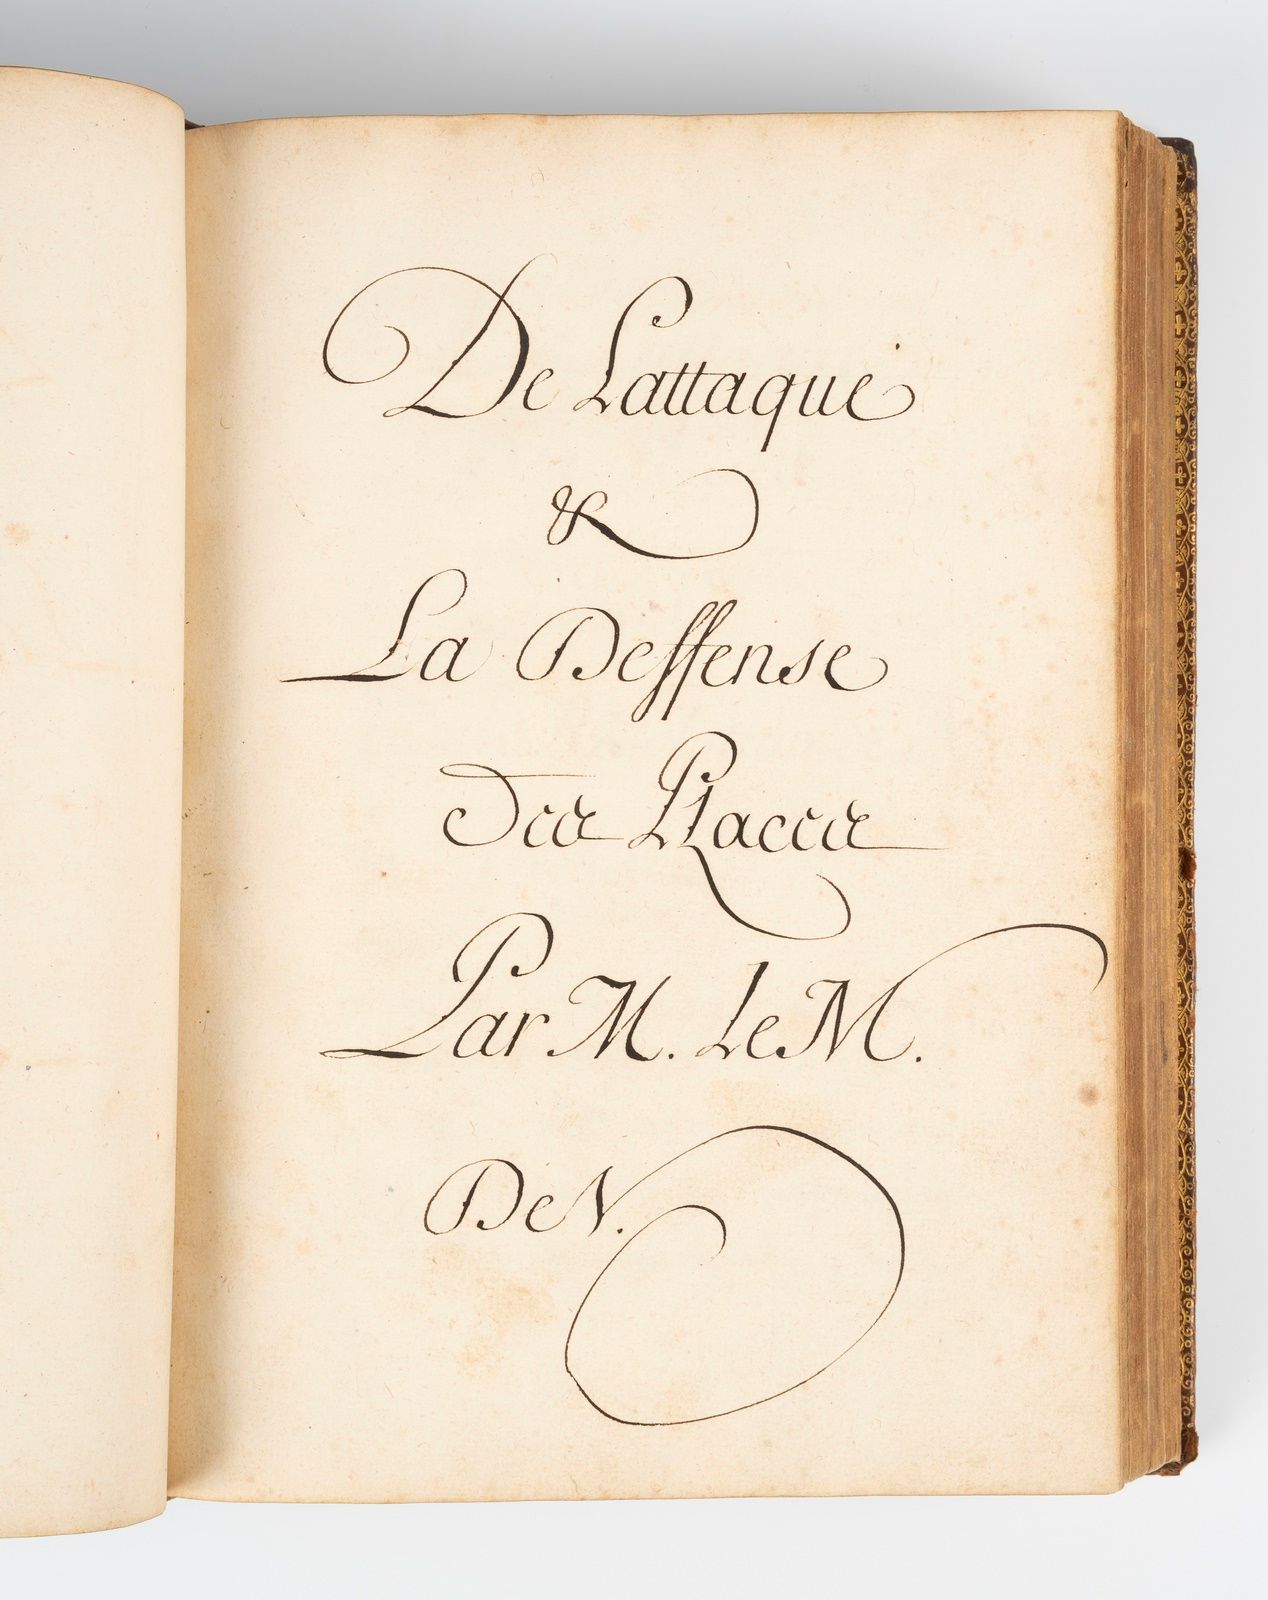 De Lattaque
&
La Deffense
Des Places
Par M. Le M.
De V.